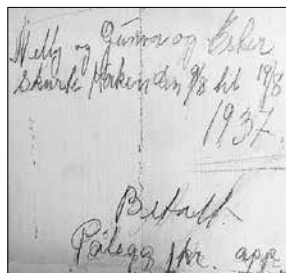 Nelly og Gunvor og Esker
Skurte Kirken den 9/8 til 18/8
1937.
Betalt.
Pålegg 1 kr. opp.